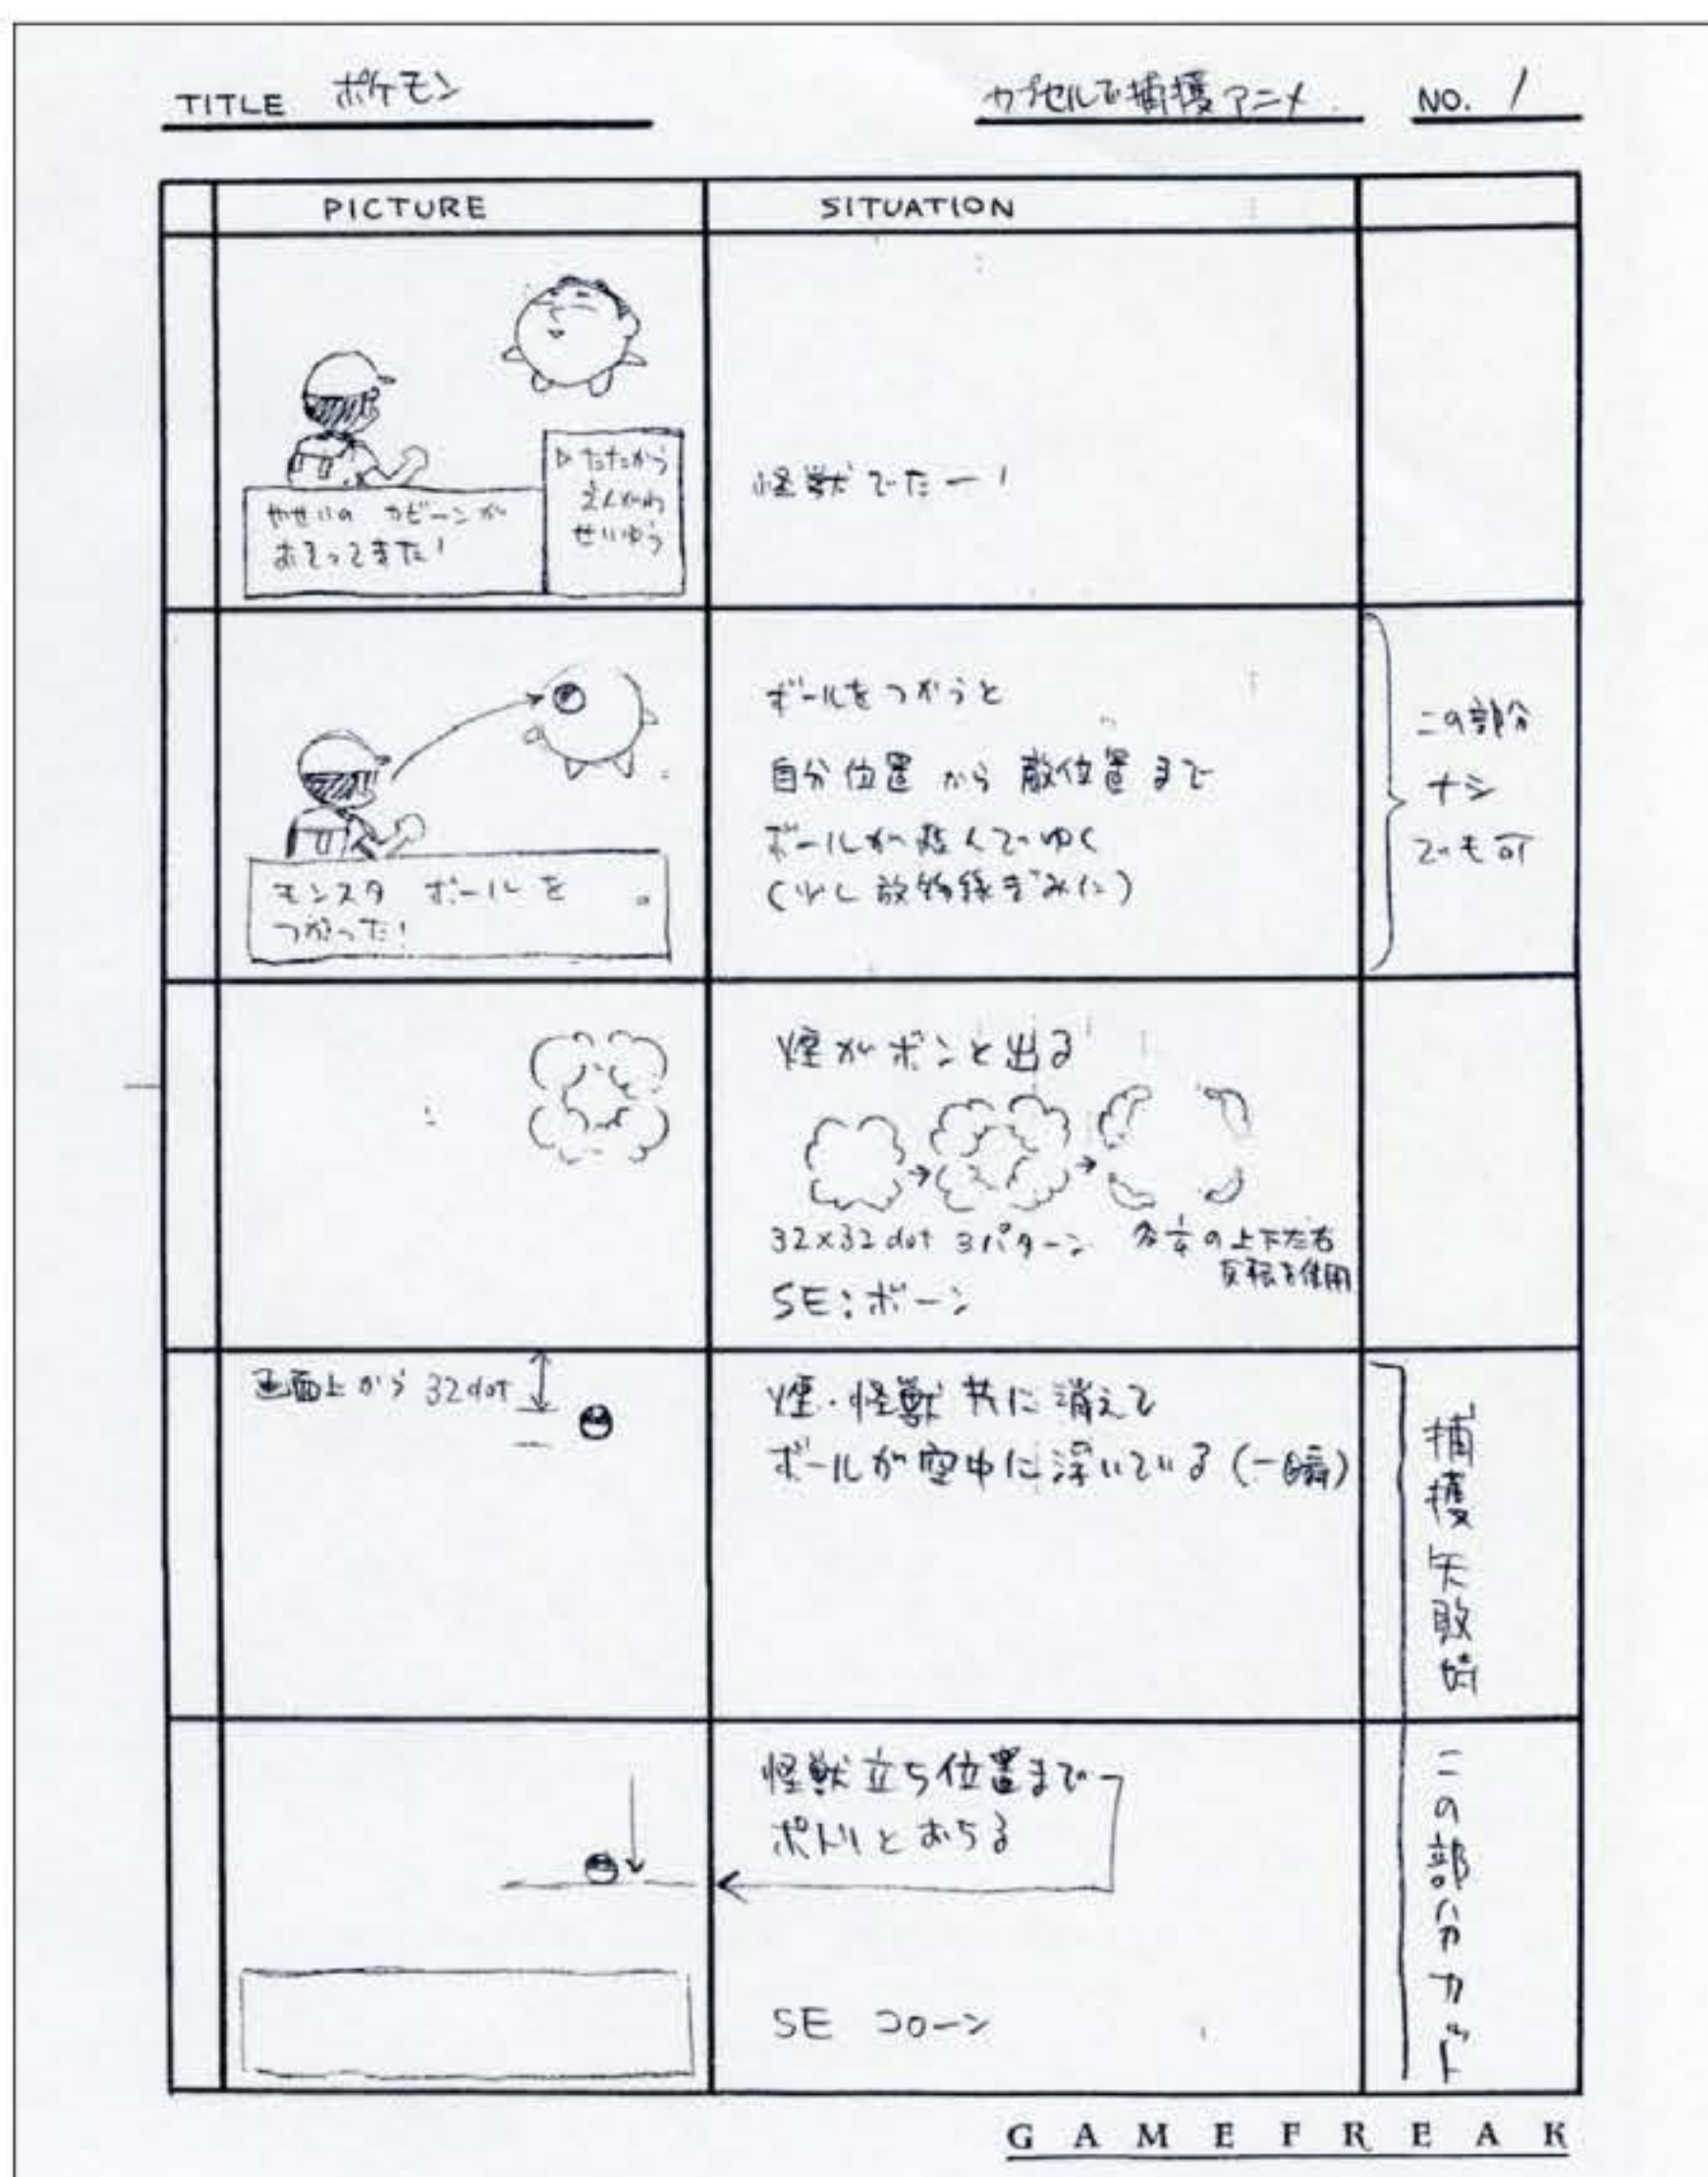 TITLE ポケモン
カプセルで捕獲アニメ
NO. 1
PICTURE
SITUATION
▷たたかう
せいゆう
やせいの カビーンが
おそってきた!
怪獣でたー!
モンスタ ボールを
つかった!
ボールをつかうと
自分位置 から 敵位置 まで
ボールが飛んでゆく
(少し放物線ぎみに)
この部分
ナシ
でも可
煙がボンと出る
32×32dot 3パターン
各¼の上下左右
反転を使用
SE:ボーン
画面上から 32dot
煙・怪獣 共に消えて
ボールが空中に浮いている(一瞬)
捕獲失敗時
怪獣立ち位置まで
ポトリとおちる
SE コローン
この部分カット
GAMEFREAK